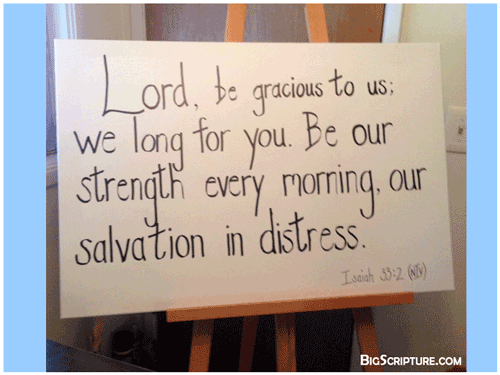 Lord, be gracious to us;
we long for you. Be our
strength every morning, our
salvation in distress.
Isaiah 33:2 (NIV)
BIGSCRIPTURE.COM